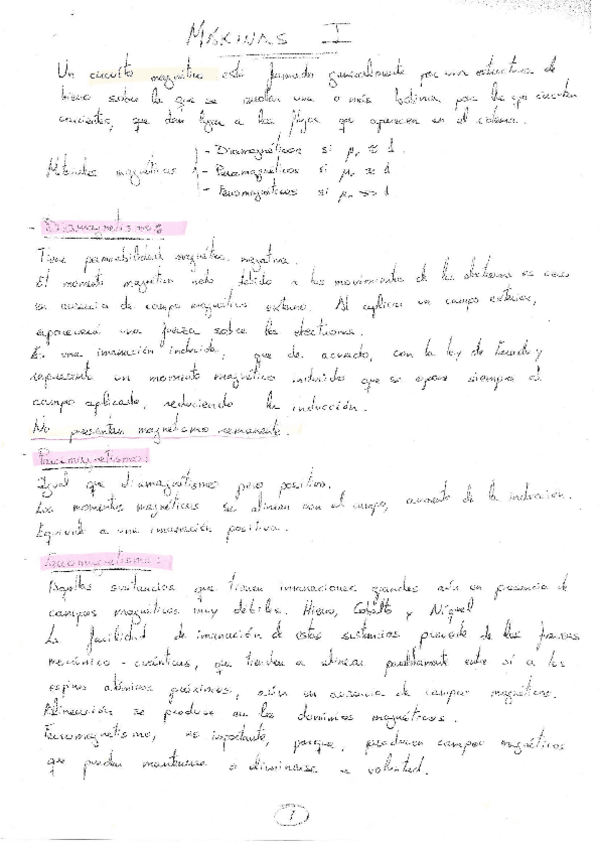 MÁKINAS I
Un circuito magnético está formado generalmente por una estructura de
hierro sobre la que se enrollan una o más bobinas por las que circulan
corrientes, que dan lugar a los flujos que aparecen en el sistema.
- Diamagnéticos si μr ≈ 1.
Materiales magnéticos - Paramagnéticos si μr ≈ 1
- Ferromagnéticos si μr >> 1
- Diamagnetismo:
Tiene permeabilidad magnética negativa.
El momento magnético neto debido a los movimientos de los electrones es cero
en ausencia de campo magnético externo. Al aplicar un campo exterior,
aparecerá una fuerza sobre los electrones.
Es una imanación inducida, que de acuerdo, con la ley de Faraday
representa un momento magnético inducido que se opone siempre al
campo aplicado, reduciendo la inducción.
No presentan magnetismo remanente.
- Paramagnetismo:
Igual que diamagnetismo pero positivo.
Los momentos magnéticos se alinean con el campo, aumento de la inducción.
Equivale a una imanación positiva.
- Ferromagnetismo:
Aquellas sustancias que tienen imanaciones grandes aún en presencia de
campos magnéticos muy débiles. Hierro, Cobalto y Níquel
La facilidad de imanación de estas sustancias procede de las fuerzas
mecánico-cuánticas, que tienden a alinear paralelamente entre sí a los
espines atómicos próximos, aún en ausencia de campos magnéticos.
Alineación se produce en los dominios magnéticos.
Ferromagnetismo, es importante, porque, producen campos magnéticos
que pueden mantenerse o eliminarse a voluntad.
1